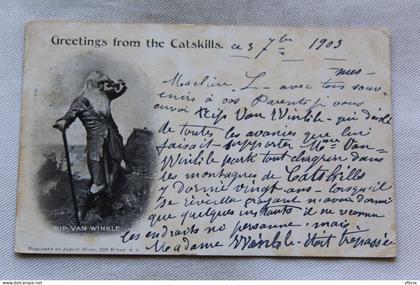 Greetings from the Catskills. ce 3 7bre 1903
mes
Madem L - avec tous
venirs à vos Parents je vous
envoi Rip Van Winkle - qui désolé
de toutes les avanies que lui
faisait supporter Mme Van
Winkle porta tout chagrin dans
les montagnes de Catskills
y dormi vingt-ans - lorsqu'il
se réveilla croyant n'avoir dormi
que quelques instants il ne reconnu
les endroits ni personne - mais
Madame Winkle - était trépassée
RIP VAN WINKLE
PUBLISHED BY ALBERT HAHN, 226 B'WAY N. Y.